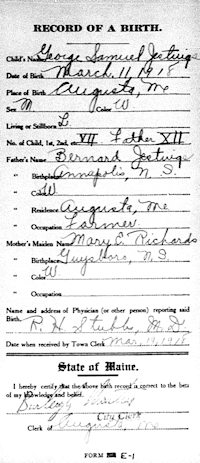 RECORD OF A BIRTH.
Child's Name George Samuel Jestings
Date of Birth March 11, 1918
Place of Birth Augusta, Me
Sex M Color W
Living or Stillborn L
No. of Child, 1st, 2nd, etc. VII Father XII
Father's Name Bernard Jestings
" Birthplace Annapolis, N. S.
" Color W
" Residence Augusta, Me
" Occupation Farmer
Mother's Maiden Name Mary E. Richards
" Birthplace Guysboro, N. S.
" Color W
" Occupation
Name and address of Physician (or other person) reporting said
Birth, R. H. Stubbs, M.D.
Date when received by Town Clerk Mar, 19, 1918
State of Maine.
I hereby certify that the above Birth record is correct to the best
of my knowledge and belief.
City Clerk
Clerk of Augusta, Me
FORM E-1